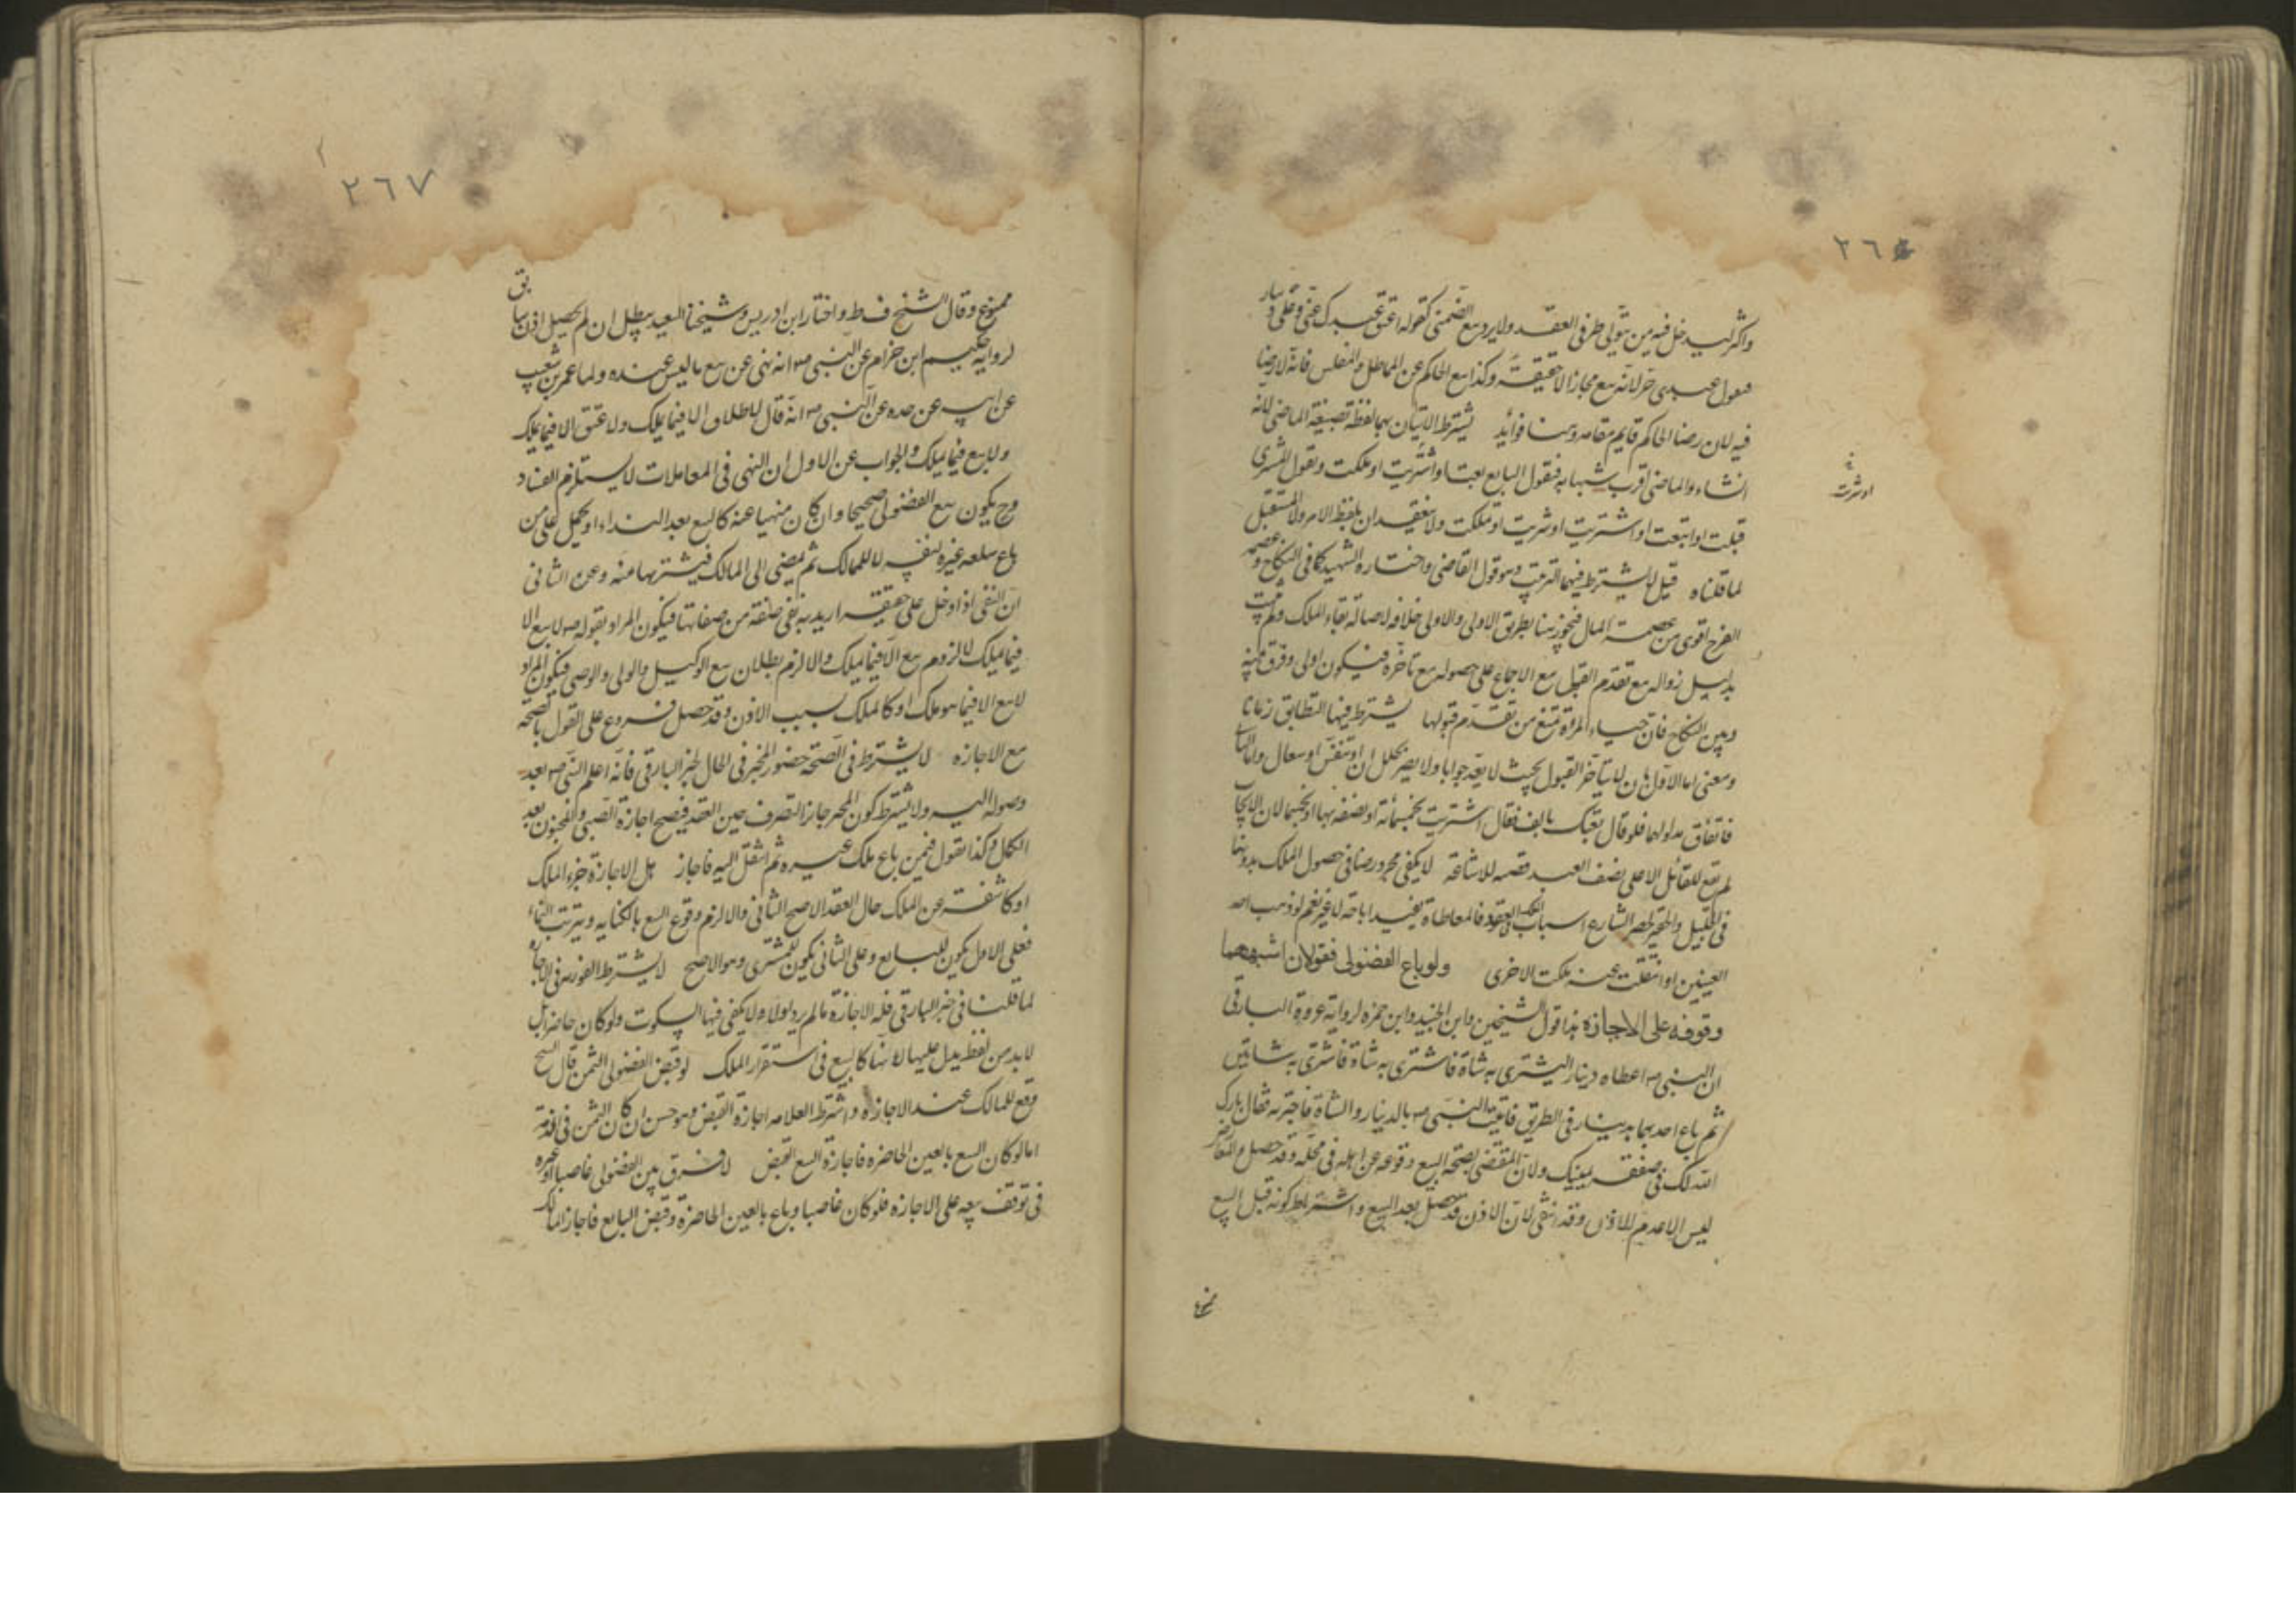 ٢٦
واكثر ليدخل فيه من يتولى طرفى العقد ولا يرد بيع الضمنى كقوله اعتق عبدك عنى وعلى دينار
فيقول عبدى حر لانه بيع مجازا لا حقيقة وكذا بيع الحاكم عن المماطل والمفلس فانه لا رضا
فيه لان رضا الحاكم قايم مقامه وهنا فوائد يشترط الاتيان بهما بلفظة بصيغة الماضى لانه
انشاء والماضى اقرب شبها به فيقول البايع بعت او اشتريت او ملكت ويقول المشترى
او شريت
قبلت او ابتعت او اشتريت او شريت او تملكت ولا ينعقد ان بلفظ الامر والمستقبل
لما قلناه قيل لا يشترط فيهما الترتيب وهو قول القاضى واختاره الشهيد كما فى النكاح وعصمة
الفرج اقوى من عصمة المال فيجوز هنا بطريق الاولى والاولى خلافه لاصالة بقاء الملك ولم يثبت
بدليل زواله مع تقدم القبول مع الاجماع على حصوله مع تاخره فيكون اولى وفرق بينه
وبين النكاح فان حياء المراة تمنع من تقدم قبولها يشترط فيها التطابق زمانا
ومعنى اما الاول بان لا يتاخر القبول بحيث لا يعد جوابا ولا يضر تخلل ان او تنفس او سعال واما الثانى
فاتفاق مدلولهما فلو قال بعتك بالف فقال اشتريت بخمسمائة او نصفه بها او بخمسها لان الايجاب
لم يقع للقائل الا على نصف العبد قضيه للاشاعة لا يكفى مجرد رضا فى حصول الملك بدونها
فى القليل والحقير لحصر الشارع اسباب العقود فالمعاطاة يفيد اباحة لا غير نعم لو ذهب احد
العينين او انتقلت عنه ملكت الاخرى ولو باع الفضولى فقولان اشبههما
وقوفه على الاجازة هذا قول الشيخين وابن الجنيد وابن حمزه لرواية عروة البارقى
ان النبى ص اعطاه دينارا ليشترى به شاة فاشترى به شاة فاشترى به شاتين
ثم باع احدهما بدينار فى الطريق فاتيت النبى ص بالدينار والشاة فاخبرته فقال بارك
الله لك فى صفقة يمينك ولان المقتضى لصحة البيع وقوعه عن اهله فى محله وقد حصل والتعذر
ليس الا عدم الاذن وقد انتفى لان الاذن قد حصل بعد البيع واشتراط كونه قبل البيع
ممنوع
٢٦٧
ممنوع وقال الشيخ فى ط واختار ابن ادريس وشيخنا السعيد يبطل ان لم يحصل اذن سابق
لرواية حكيم ابن حزام عن النبى ص انه نهى عن بيع ما ليس عنده ولما عمر بن شعيب
عن ابيه عن جده عن النبى ص انه قال لا طلاق الا فيما يملك ولا عتق الا فيما يملك
ولا بيع فيما يملك والجواب عن الاول ان النهى فى المعاملات لا يستلزم الفساد
وح يكون بيع الفضولى صحيحا وان كان منهيا عنه كالبيع بعد النداء او يحمل على من
باع سلعه غيره لنفسه لا للمالك ثم يمضى الى المالك فيشتريها منه وعن الثانى
ان النفى اذا دخل على حقيقة اريد به نفى صفة من صفاتها فيكون المراد بقوله ص لا بيع الا
فيما يملك لا لزوم بيع الا فيما يملك والا لزم بطلان بيع الوكيل والولى والوصى فيكون المراد
لا بيع الا فيما هو ملك او كالملك بسبب الاذن وقد حصل فروع على القول بالصحة
مع الاجازه لا يشترط فى الصحة حضور المخير فى الحال لخبر البارقى فانه اعلم النبى ص بعد
وصوله اليه ولا يشترط كون المجيز جائز التصرف حين العقد فيصح اجازة الصبى والمجنون بعد
الكمال وكذا نقول فيمن باع ملك غيره ثم انتقل اليه فاجاز هل الاجازة جزء الملك
او كاشفة عن الملك حال العقد الاصح الثانى والا لزم وقوع البيع بالكنايه ويترتب النماء
فعلى الاول يكون للبايع وعلى الثانى يكون للمشترى وهو الاصح لا يشترط الفوريه فى الاجازه
لما قلنا فى خبر البارقى فله الاجازة ما لم يرد ولولاه لا يكفى فيها السكوت ولو كان حاضرا بل
لا بد من لفظ يدل عليها لانها كالبيع فى استقرار الملك لو قبض الفضولى الثمن قال الشيخ
وقع للمالك عند الاجازة واشترط العلامه اجازة القبض وهو حسن ان كان الثمن فى الذمة
اما لو كان البيع بالعين الحاضره فاجازة البيع القبض لا فرق بين الفضولى غاصبا او غيره
فى توقف بيعه على الاجازه فلو كان غاصبا وباع بالعين الحاضرة وقبض البايع فاجاز المالك